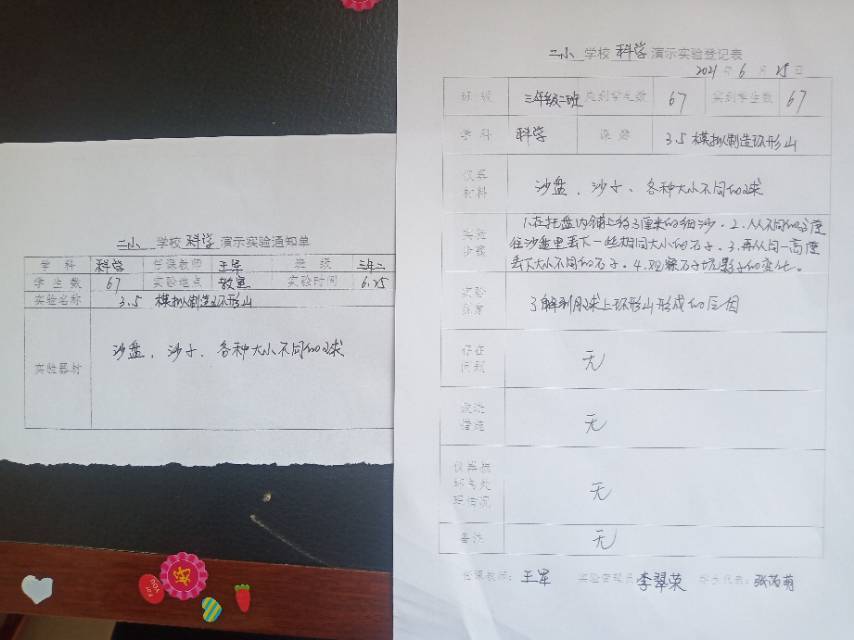 二小 学校 科学 演示实验通知单
学科 科学 任课教师 王军 班级 三年二
学生数 67 实验地点 教室 实验时间 6.25
实验名称 3.5 模拟制造环形山
实验器材 沙盘、沙子、各种大小不同的球
二小 学校 科学 演示实验登记表
2021 年 6 月 25 日
班级 三年级二班 应到学生数 67 实到学生数 67
学科 科学 课题 3.5 模拟制造环形山
仪器材料 沙盘、沙子、各种大小不同的球
实验步骤 1.在托盘内铺上约3厘米的细沙。2.从不同的高度
往沙盘里丢下一些相同大小的石子。3.再从同一高度
丢下大小不同的石子。4.观察石子坑影子的变化。
实验效果 了解到月球上环形山形成的原因
存在问题 无
改进措施 无
仪器损坏与处理情况 无
备注 无
任课教师：王军 实验管理员 李翠荣 学生代表：张